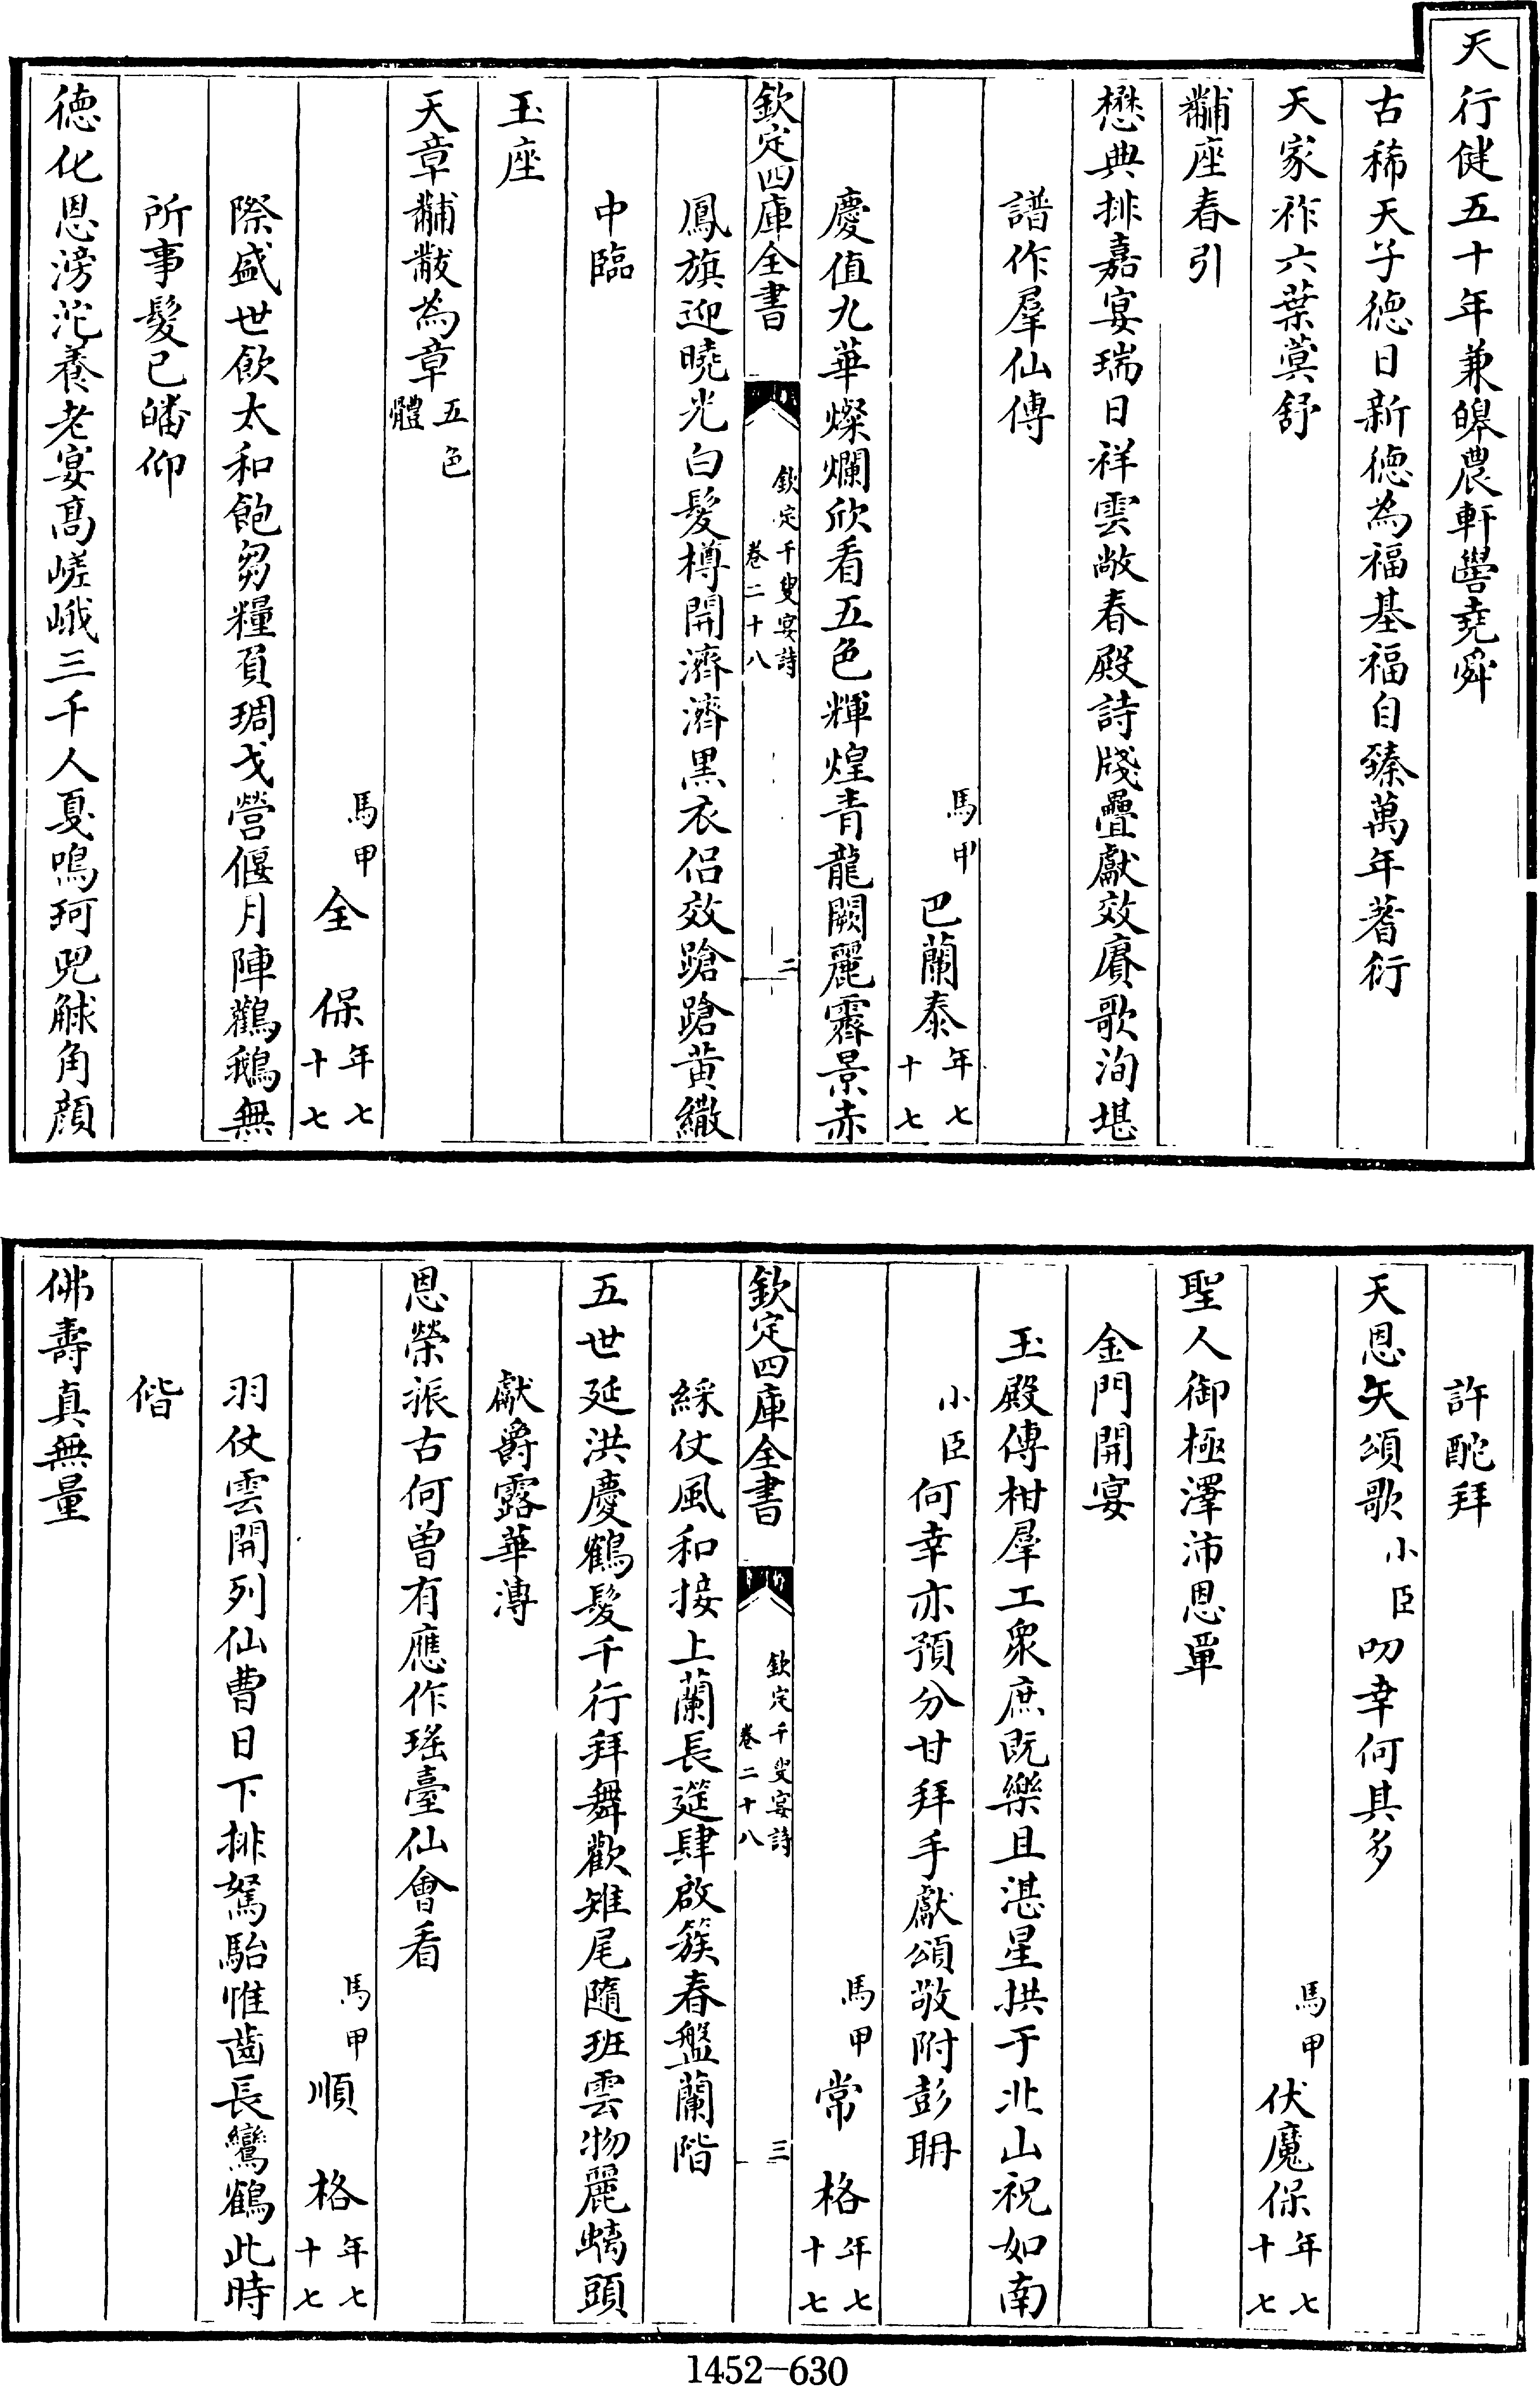 天行健五十年兼皞農軒嚳堯舜
古稀天子德日新德為福基福自臻萬年蓍衍
天家祚六葉蓂舒
黼座春引
懋典排嘉宴瑞日祥雲敞春殿詩牋疊獻效賡歌洵堪
譜作羣仙傳
馬甲巴蘭泰年七十七
慶值九華燦爛欣看五色輝煌青龍闕麗霽景赤
欽定四庫全書
欽定千叟宴詩
卷二十八
二
鳳旗迎曉光白髮樽開濟濟黑衣侶效蹌蹌黄繖
中臨
玉座
天章黼黻為章五色體
馬甲全保年七十七
際盛世飲太和飽芻糧負琱戈營偃月陣鸛鵝無
所事髮已皤仰
德化恩滂沱養老宴高嵯峨三千人戞鳴珂兕觩角顔
許酡拜
天恩矢頌歌小臣叨幸何其多
馬甲伏魔保年七十七
聖人御極澤沛恩覃
金門開宴
玉殿傳柑羣工衆庶既樂且湛星拱于北山祝如南
小臣何幸亦預分甘拜手獻頌敬附彭聃
馬甲常格年七十七
欽定四庫全書
欽定千叟宴詩
卷二十八
三
綵仗風和接上蘭長筵肆啟簇春盤蘭階
五世延洪慶鶴髮千行拜舞歡雉尾隨班雲物麗螭頭
獻爵露華漙
恩榮振古何曾有應作瑤臺仙會看
馬甲順格年七十七
羽仗雲開列仙曹日下排駑駘惟齒長鸞鶴此時
偕
佛壽真無量
1452-630